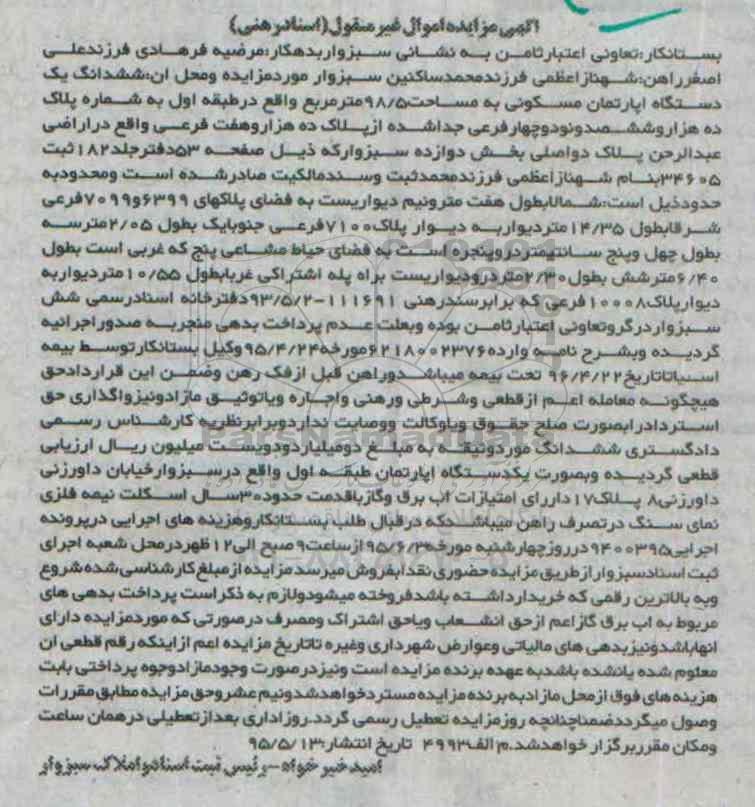 آگهی مزایده اموال غیر منقول (اسناد رهنی)
بستانکار:تعاونی اعتبارثامن به نشانی سبزواربدهکار:مرضیه فرهادی فرزندعلی
اصغرراهن:شهنازاعظمی فرزندمحمدساکنین سبزوار موردمزایده ومحل آن:ششدانگ یک
دستگاه آپارتمان مسکونی به مساحت۹۸/۵مترمربع واقع درطبقه اول به شماره پلاک
ده هزاروششصدونودوچهارفرعی جداشده ازپلاک ده هزاروهفت فرعی واقع دراراضی
عبدالرحمن پلاک دواصلی بخش دوازده سبزوارکه ذیل صفحه ۵۳دفترجلد۱۸۲ثبت
۳۴۶۰۵بنام شهنازاعظمی فرزندمحمدثبت وسندمالکیت صادرشده است ومحدودبه
حدودذیل است:شمالابطول هفت مترونیم دیواریست به فضای پلاکهای ۶۳۹۹و۷۰۹۹فرعی
شرقابطول ۱۴/۳۵متردیواربه دیوار پلاک۷۱۰۰فرعی جنوبایک بطول ۲/۰۵مترسه
بطول چهل وپنج سانتیمتردروپنجره است به فضای حیاط مشاعی پنج که غربی است بطول
۶/۴۰مترشش بطول۲/۳۰متردرودیواریست براه پله اشتراکی غربابطول ۱۰/۵۵متردیواربه
دیوارپلاک۱۰۰۰۸فرعی که برابرسندرهنی ۱۱۱۶۹۱-۹۳/۵/۲دفترخانه اسنادرسمی شش
سبزواردرگروتعاونی اعتبارثامن بوده وبعلت عدم پرداخت بدهی منجربه صدوراجرائیه
گردیده وبشرح نامه وارده۶۲۱۸۰۰۲۳۷۶مورخه۹۵/۴/۲۴وکیل بستانکارتوسط بیمه
آسیاتاتاریخ۹۶/۴/۲۲ تحت بیمه میباشدوراهن قبل ازفک رهن وضمن این قراردادحق
هیچگونه معامله اعم ازقطعی وشرطی ورهنی واجاره ویاتوثیق مازادونیزواگذاری حق
استردادرابصورت صلح حقوق ویاوکالت ووصایت نداردوبرابرنظریه کارشناس رسمی
دادگستری ششدانگ موردوثیقه به مبلغ دومیلیاردودویست میلیون ریال ارزیابی
قطعی گردیده وبصورت یکدستگاه آپارتمان طبقه اول واقع درسبزوارخیابان داورزنی
داورزنی۸ پلاک۱۷دارای امتیازات آب برق وگازباقدمت حدود۳۰سال اسکلت نیمه فلزی
نمای سنگ درتصرف راهن میباشدکه درقبال طلب بستانکاروهزینه های اجرایی درپرونده
اجرایی۹۴۰۰۳۹۵درروزچهارشنبه مورخه۹۵/۶/۳ازساعت۹صبح الی۱۲ظهردرمحل شعبه اجرای
ثبت اسنادسبزوارازطریق مزایده حضوری نقدابفروش میرسدمزایده ازمبلغ کارشناسی شده شروع
وبه بالاترین رقمی که خریدارداشته باشدفروخته میشودولازم به ذکراست پرداخت بدهی های
مربوط به آب برق گازاعم ازحق انشعاب ویاحق اشتراک ومصرف درصورتی که موردمزایده دارای
آنهاباشدونیزبدهی های مالیاتی وعوارض شهرداری وغیره تاتاریخ مزایده اعم ازاینکه رقم قطعی آن
معلوم شده یانشده باشدبه عهده برنده مزایده است ونیزدرصورت وجودمازادوجوه پرداختی بابت
هزینه های فوق ازمحل مازادبه برنده مزایده مسترد خواهدشدونیم عشروحق مزایده مطابق مقررات
وصول میگرددضمناچنانچه روزمزایده تعطیل رسمی گردد.روزاداری بعدازتعطیلی درهمان ساعت
ومکان مقرربرگزار خواهدشد.م الف۴۹۹۳ تاریخ انتشار:۹۵/۵/۱۳
امید خیر خواه -رئیس ثبت اسناد واملاک سبزوار